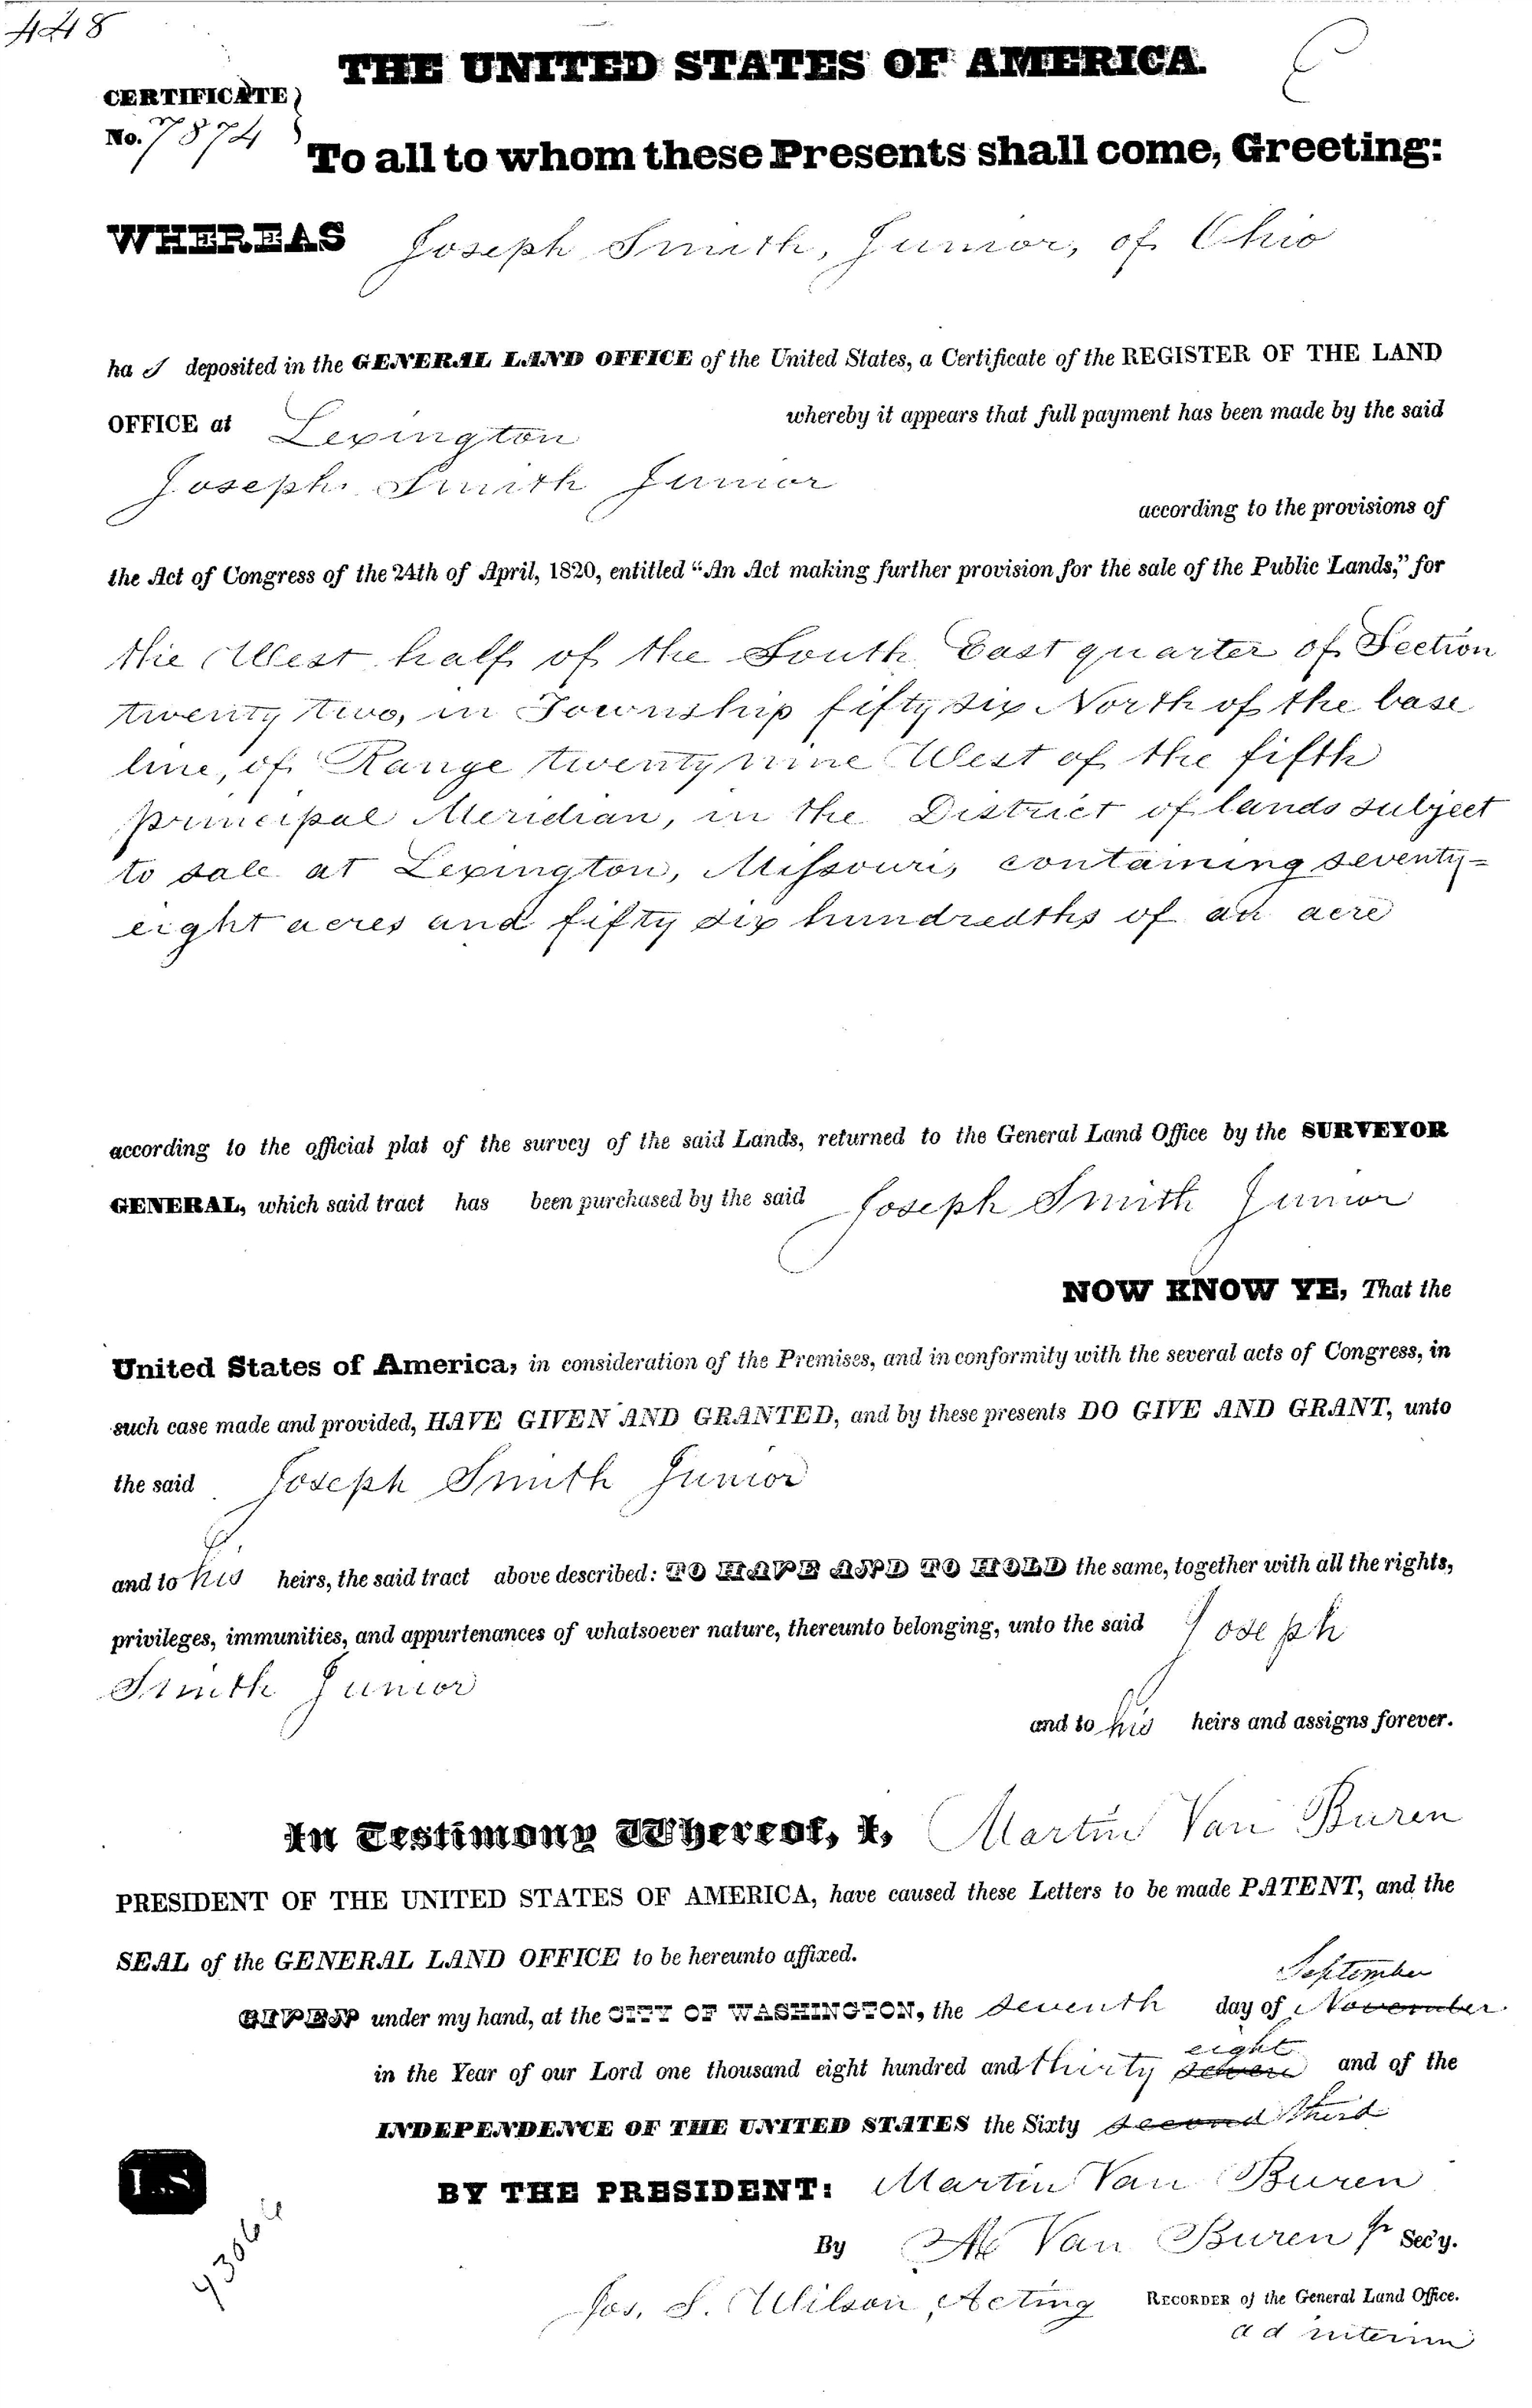 448
THE UNITED STATES OF AMERICA.
CERTIFICATE
No. 7874
To all to whom these Presents shall come, Greeting:
WHEREAS Joseph Smith, Junior, of Ohio
ha s deposited in the GENERAL LAND OFFICE of the United States, a Certificate of the REGISTER OF THE LAND
OFFICE at Lexington whereby it appears that full payment has been made by the said
Joseph Smith Junior
according to the provisions of
the Act of Congress of the 24th of April, 1820, entitled "An Act making further provision for the sale of the Public Lands," for
the West half of the South East quarter of Section
twenty two, in Township fifty six North of the base
line, of Range twenty nine West of the fifth
principal Meridian, in the District of lands subject
to sale at Lexington, Missouri, containing seventy-
eight acres and fifty six hundredths of an acre
according to the official plat of the survey of the said Lands, returned to the General Land Office by the SURVEYOR
GENERAL, which said tract has been purchased by the said Joseph Smith Junior
NOW KNOW YE, That the
United States of America, in consideration of the Premises, and in conformity with the several acts of Congress, in
such case made and provided, HAVE GIVEN AND GRANTED, and by these presents DO GIVE AND GRANT, unto
the said Joseph Smith Junior
and to his heirs, the said tract above described: TO HAVE AND TO HOLD the same, together with all the rights,
privileges, immunities, and appurtenances of whatsoever nature, thereunto belonging, unto the said Joseph
Smith Junior
and to his heirs and assigns forever.
In Testimony Whereof, I, Martin Van Buren
PRESIDENT OF THE UNITED STATES OF AMERICA, have caused these Letters to be made PATENT, and the
SEAL of the GENERAL LAND OFFICE to be hereunto affixed.
September
GIVEN under my hand, at the CITY OF WASHINGTON, the seventh day of November
eight
in the Year of our Lord one thousand eight hundred and thirty seven and of the
INDEPENDENCE OF THE UNITED STATES the Sixty second third
L.S
BY THE PRESIDENT: Martin Van Buren
By M Van Buren Jr Sec'y.
Jos. S. Wilson, Acting RECORDER of the General Land Office.
ad interim